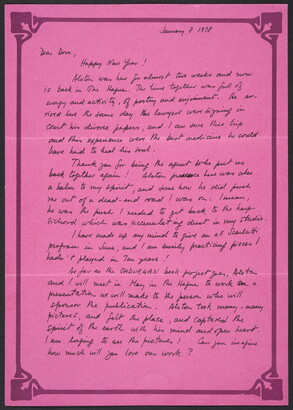 January 8 1978
Dear Dora,
Happy New Year!
Alston was here for almost two weeks and now
is back in The Hague. The time together was full of
energy and activity, of poetry and enjoyment. He ar-
rived here the same day the lawyers were signing in
court his divorce papers, and I am sure this trip
and this experience were the best medicine he could
have had to heal his soul.
Thank you for being the agent who put us
back together again! Alston's presence here was also
a balm to my spirit, and somehow he did push
me out of a dead-end road I was on. I mean,
he was the push I needed to get back to the harp-
sichord which was accumulating dust in my studio.
I have made up my mind to give an all Scarlatti
program in June, and I am busily practicing pieces I
hadn't played in ten years!
As far as the book project goes, Alston
and I will meet in May in The Hague to work on a
presentation we will make to the person who will
sponsor the publication. Alston took many, many
pictures, and felt the place, and captured the
spirit of the earth with his mind and open heart.
I am longing to see the pictures! Can you imagine
how much will you love our work?